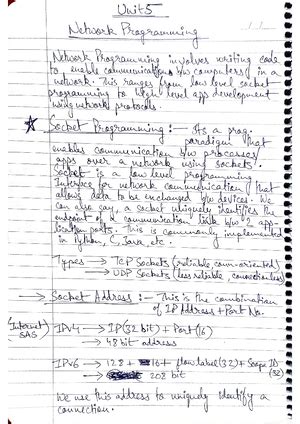 Unit 5
Network Programming
Network Programming involves writing code
to enable communication b/w computers in a
network. This ranges from low level socket
programming to high level app development
using network protocols.
Socket Programming :- Its a prog.
paradigm that
enables communication b/w processes/
apps over a network using sockets.
Socket is a low level programming
Interface for network communication that
allows data to be exchanged b/w devices. We
can also say, a socket uniquely identifies the
endpoint of a communication link b/w 2 app-
lication ports. This is commonly implemented
in Python, C, Java, etc.
Types → TCP Sockets (reliable, conn-oriented)
→ UDP Sockets (less reliable, connectionless)
→ Socket Address :- This is the combination
of IP Address + Port No.
(Internet) IPv4 → IP (32 bit) + Port (16)
SAS → 48 bit address
IPv6 → 128 + 16 + flow label (32) + Scope ID
(32)
→ 208 bit
We use this address to uniquely identify a
connection.